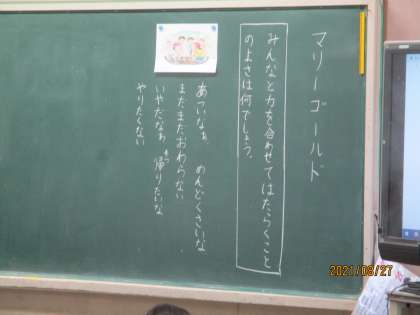 マリーゴールド
みんなと力を合わせてはたらくこと
のよさは何でしょう。
あついなぁ めんどくさいな
まだまだおわらない
いやだなぁ もう帰りたいな
やりたくない
2021/08/27